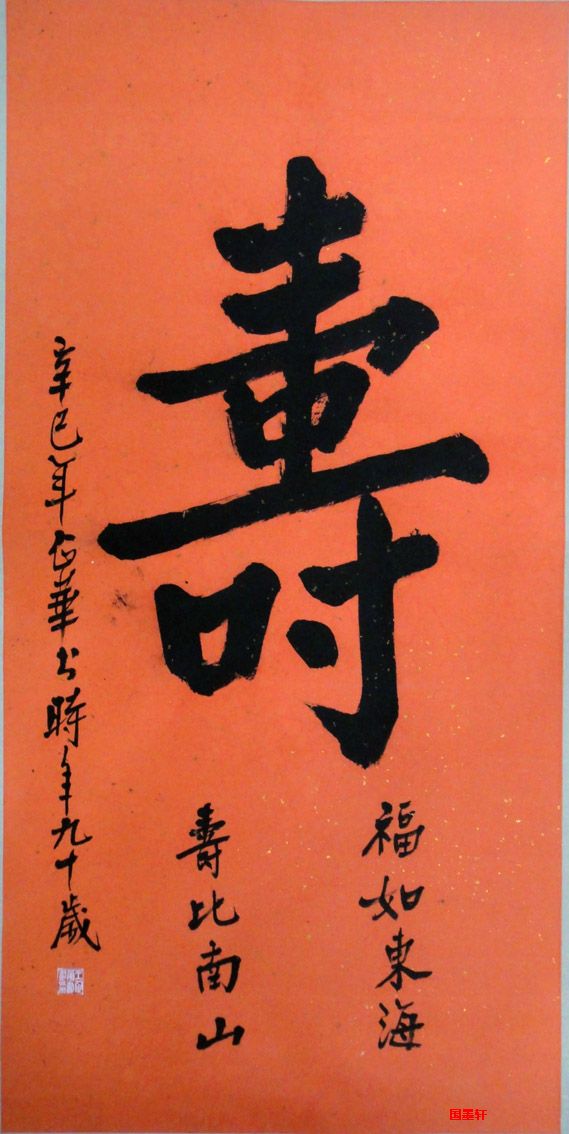 壽
福如東海
壽比南山
辛巳年正華书時年九十歲
国墨轩